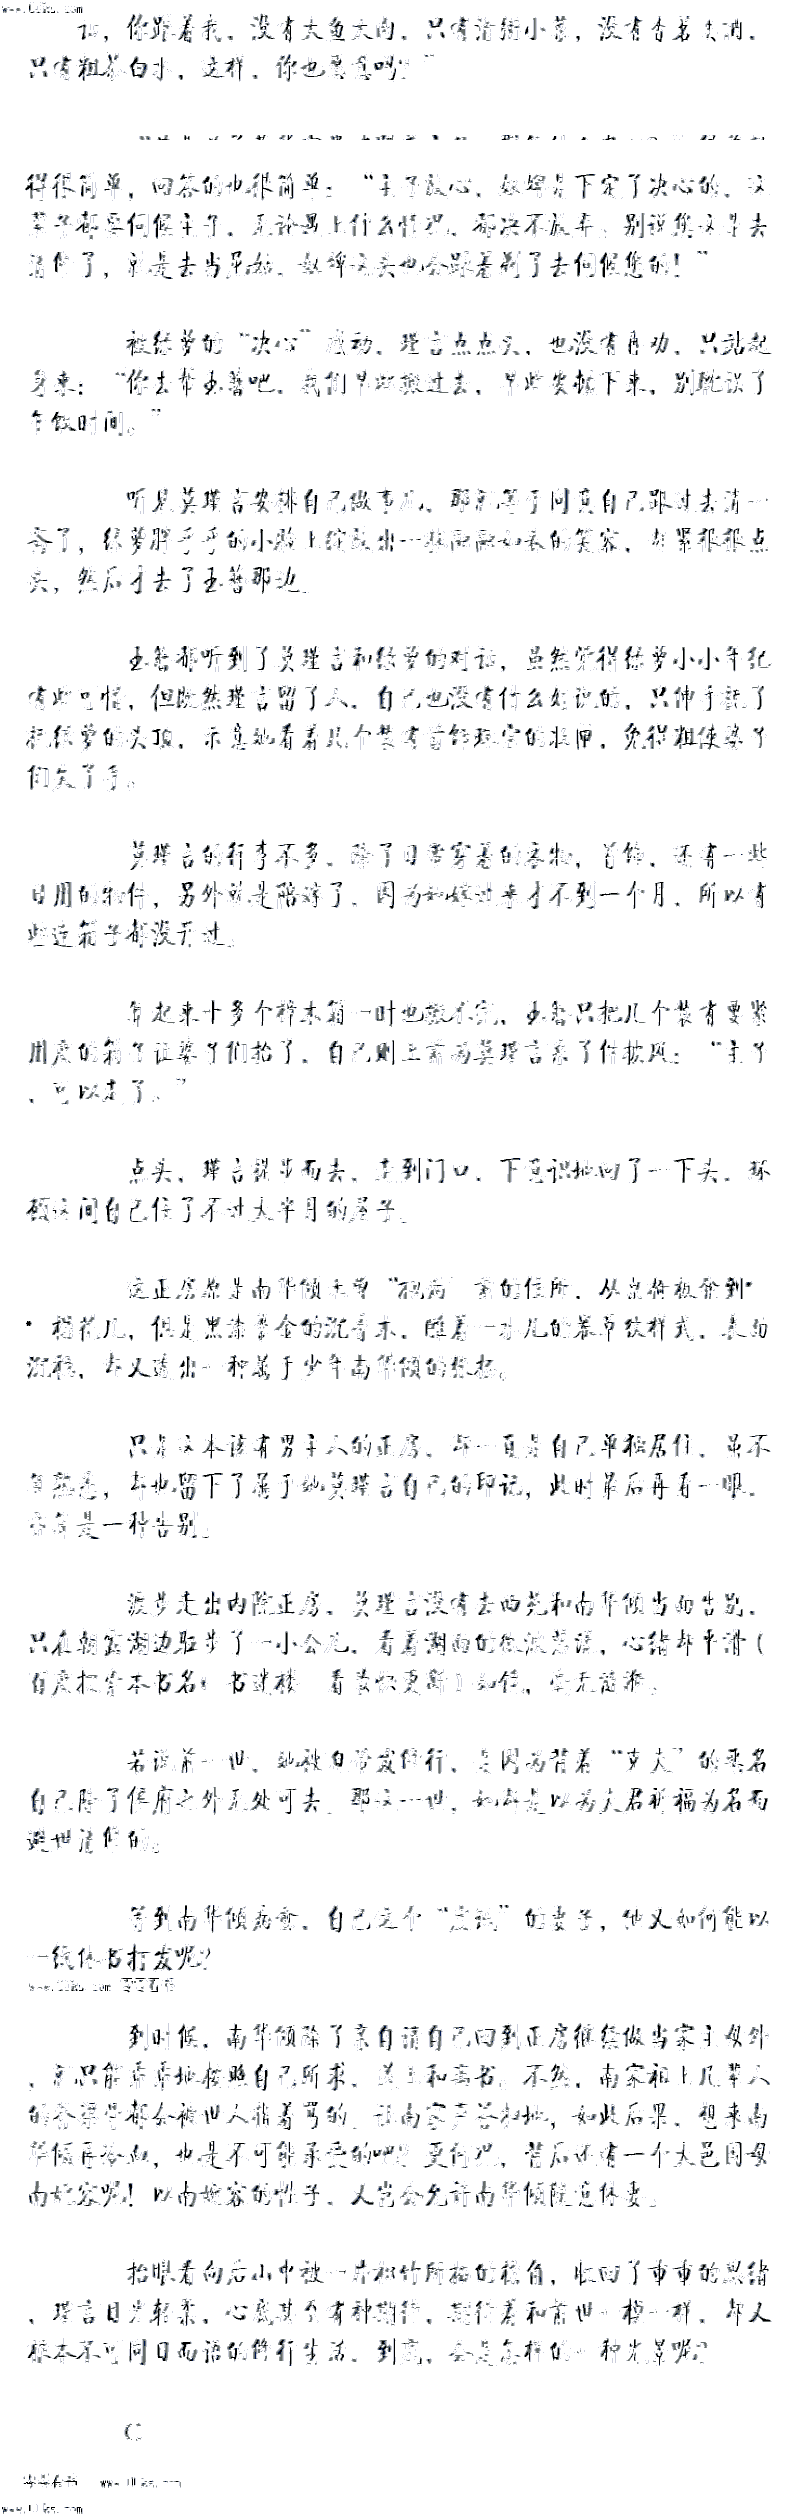 话，你跟着我，没有大鱼大肉，只有清粥小菜，没有香茗
只有粗茶白水，这样，你也愿意吗？”
得很简单，回答的也很简单：“主子放心，奴婢是下定了决心的，这
辈子都要伺候主子，无论遇上什么情况，都决不放弃，别说您这是去
清修了，就是去当尼姑，奴婢也会跟着去伺候您的！”
被绿萝的“决心”感动，瑾言点点头，也没有再劝，只站起
身来：“你去帮玉簪吧，我们早些搬过去，早些安顿下来，别耽误了
午饭时间。”
听见莫瑾言安排自己做事儿，那就等于同意自己跟过去清一
斋了，绿萝胖乎乎的小脸上绽放出一抹的笑容，赶紧狠狠点
头，然后才去了玉簪那边。
玉簪都听到了莫瑾言和绿萝的对话，虽然觉得绿萝小小年纪
有些可惜，但既然瑾言留了人，自己也没有什么好说的，只伸手
绿萝的头顶，示意她看着几个装有首饰的妆匣，免得粗使婆子
们失了手。
莫瑾言的行李不多，除了日常穿着的衣物，首饰，还有一些
日用的物件，另外就是陪嫁了，因为她嫁过来才不到一个月，所以有
些连箱子都没开过。
算起来十多个樟木箱一时也搬不完，玉簪只把几个装有要紧
用度的箱子让婆子们抬了，自己则上前为莫瑾言系了件披风：“主子
，可以走了。”
点头，瑾言提步而去，走到门口，下意识地回了一下头，环
顾这间自己住了不过大半月的屋子。
这正房原是南华倾未曾“”前的住所，从
榻花几，但是黑漆的沉香木，雕着一水儿的草纹样式，表面
沉稳，却又透出一种属于少年南华倾的张扬。
只是这本该有男主人的正房，却一直是自己单独居住，虽不
算熟悉，却也留下了属于她莫瑾言自己的印记，此时最后再看一眼，
亦算是一种告别。
渡步走出内院正房，莫瑾言没有去西苑和南华倾当面告别，
只在朝露湖边驻步了一小会儿，看着湖面的微波荡漾，心绪却平滑（
百度搜索本书名+书迷楼 看最快更新）如镜，毫无涟漪。
若说前一世，她被迫带发修行，是因为背着“克夫”的恶名
自己除了侯府之外无处可去，那这一世，她却是以为夫君祈福为名而
避世清修的。
等到南华倾病愈，自己这个“”的妻子，他又如何能以
一纸休书打发呢？
www.00ks.com 零零看书
到时候，南华倾除了亲自请自己回到正房继续做当家主母外
，就只能乖乖地按照自己所求，送上和离书，不然，南家祖上几辈人
的脊梁骨都会被世人指着骂的，让南家声誉扫地，如此后果，想来南
华倾再冷血，也是不可能承受的吧？更何况，背后还有一个大邑国母
南婉容呢！以南婉容的性子，又岂会允许南华倾随意休妻。
抬眼看向后山中被一片松竹所掩的檐角，收回了重重的思绪
，瑾言目光轻柔，心底甚至有种期待，期待着和前世一模一样，却又
根本不可同日而语的修行生活，到底，会是怎样的一种光景呢？
(
零零看书 www.00ks.com
www.00ks.com